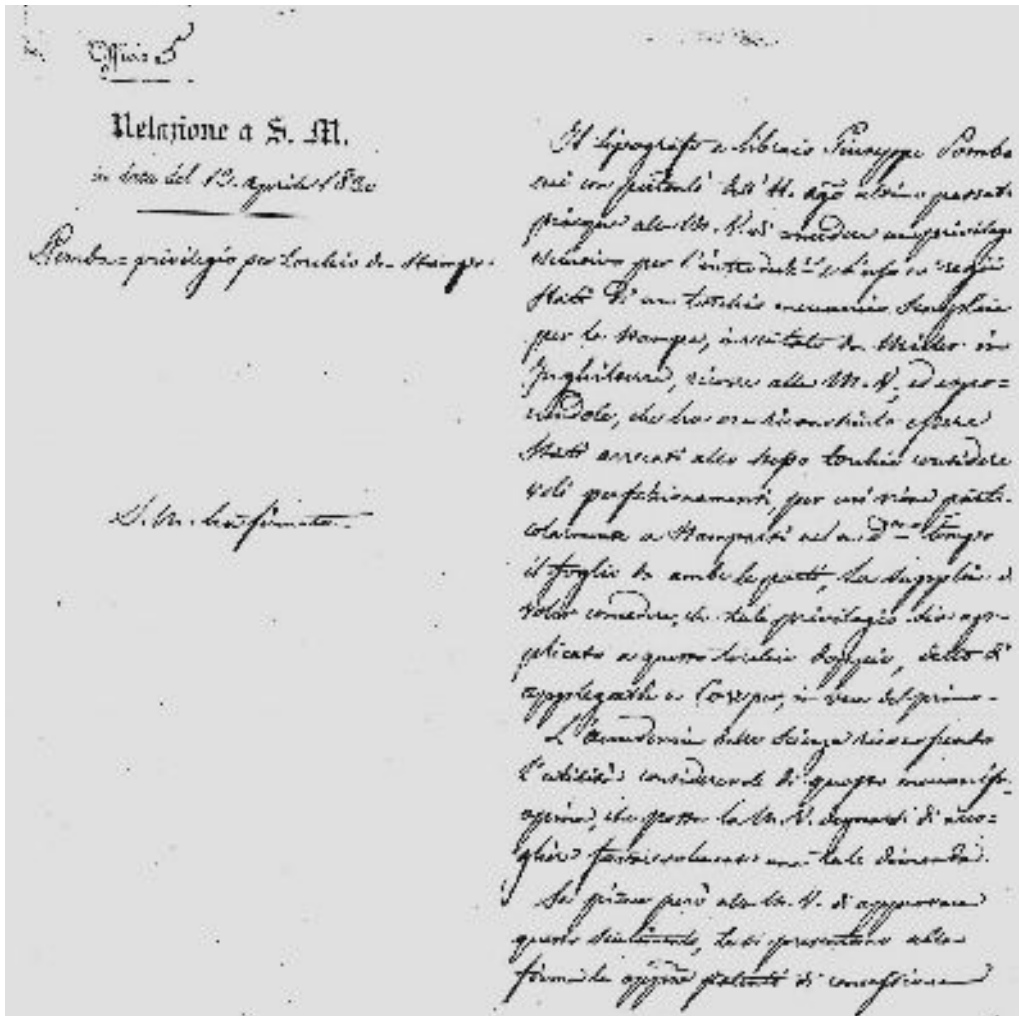 Offizio 5
Relazione a S. M.
in data del 13. Aprile 1830
Pomba = privilegio per torchio da stampa.
S. M. ha firmato.
Il tipografo e libraio Giuseppe Pomba
cui con patenti dell' 11. agō ultimo passato
piacque alla M. V. di concedere un privilegio
esclusivo per l'introduz.e e l'uso ne' regii
Stati di un torchio meccanico semplice
per la stampa, inventato da Miller in
Inghilterra, ricorre alla M. V., ed espo=
nendole, che ha ora riconosciuto essere
stati arrecati allo stesso torchio considere
voli perfezionamenti, per cui viene parti=
colarmente a stamparsi nel med.mo tempo
il foglio da ambe le parti, la supplica di
voler concedere, che tale privilegio sia ap=
plicato a questo torchio doppio, detto di
Applegath e Cowper, in vece del primo.
L'Accademia delle Scienze riconosciuta
l'utilità considerevole di questo meccanismo
opina, che possa la M. V. degnarsi di acco=
gliere favorevolmente una tale dimanda.
Se piace però alla M. V. di approvare
questo sentimento, le si presentano alla
firma le oppne patenti di concessione